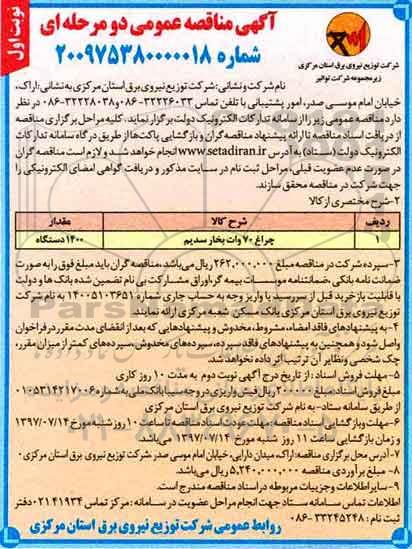 نوبت اول
آگهی مناقصه عمومی دو مرحله ای
شماره ۲۰۰۹۷۵۳۸۰۰۰۰۰۱۸
شرکت توزیع نیروی برق استان مرکزی
زیرمجموعه شرکت توانیر
نام شرکت و نشانی: شرکت توزیع نیروی برق استان مرکزی به نشانی: اراک،
خیابان امام موسی صدر، امور پشتیبانی با تلفن تماس ۳۲۲۲۶۰۳۳-۰۸۶ و ۳۲۲۲۸۰۳۸-۰۸۶ در نظر
دارد مناقصه عمومی زیر را از سامانه تدارکات الکترونیک دولت برگزار نماید، کلیه مراحل برگزاری مناقصه
از دریافت اسناد مناقصه تا ارائه پیشنهاد مناقصه گران و بازگشایی پاکت‌ها از طریق درگاه سامانه تدارکات
الکترونیک دولت (ستاد) به آدرس www.setadiran.ir انجام خواهد شد و لازم است مناقصه گران
در صورت عدم عضویت قبلی، مراحل ثبت نام در سایت مذکور و دریافت گواهی امضای الکترونیکی را
جهت شرکت در مناقصه محقق سازند.
۲-شرح مختصری از کالا
ردیف شرح کالا مقدار
۱ چراغ ۷۰ وات بخار سدیم ۱۴۰۰ دستگاه
۳-سپرده شرکت در مناقصه مبلغ ۲۶۲,۰۰۰,۰۰۰ ریال می‌باشد، مناقصه گران باید مبلغ فوق را به صورت
ضمانت نامه بانکی، ضمانتنامه موسسات بیمه گر، اوراق مشارکت بی نام تضمین شده بانک ها و دولت
با قابلیت بازخرید قبل از سررسید یا واریز وجه به حساب جاری شماره ۱۴۰۰۵۱۰۳۶۵۱ به نام شرکت
توزیع نیروی برق استان مرکزی بانک مسکن شعبه مرکزی ارائه نمایند.
۴-به پیشنهادهای فاقد امضاء، مشروط، مخدوش و پیشنهادهایی که بعد از انقضای مدت مقرر در فراخوان
واصل شود و همچنین به پیشنهادهای فاقد سپرده، سپرده‌های مخدوش، سپرده‌های کمتر از میزان مقرر،
چک شخصی و نظایر آن ترتیب اثر داده نخواهد شد.
۵-مهلت فروش اسناد: از تاریخ درج آگهی نوبت دوم به مدت ۱۰ روز کاری
مبلغ فروش اسناد: مبلغ ۲۰۰,۰۰۰ ریال فیش واریزی در وجه سیبا بانک ملی به شماره ۰۱۰۵۳۱۴۲۱۷۰۰۶
از طریق سامانه ستاد- به نام شرکت توزیع نیروی برق استان مرکزی
۶-مهلت و بازگشایی اسناد مناقصه: مهلت عودت اسناد مناقصه تا ساعت ۱۰ روز شنبه مورخ ۱۳۹۷/۰۷/۱۴
و زمان بازگشایی ساعت ۱۱ روز شنبه مورخ ۱۳۹۷/۰۷/۱۴ می‌باشد.
۷-آدرس محل برگزاری مناقصه: اراک، میدان دارایی، خیابان امام موسی صدر، شرکت توزیع نیروی برق استان مرکزی.
۸- مبلغ برآوردی مناقصه ۵,۲۴۰,۰۰۰,۰۰۰ ریال می‌باشد.
۹-سایر اطلاعات و جزییات مربوطه در اسناد مناقصه مندرج است.
اطلاعات تماس سامانه ستاد جهت انجام مراحل عضویت در سامانه: مرکز تماس ۰۲۱۴۱۹۳۴ دفتر
ثبت نام: ۳۳۲۴۵۲۴۸-۰۸۶
روابط عمومی شرکت توزیع نیروی برق استان مرکزی